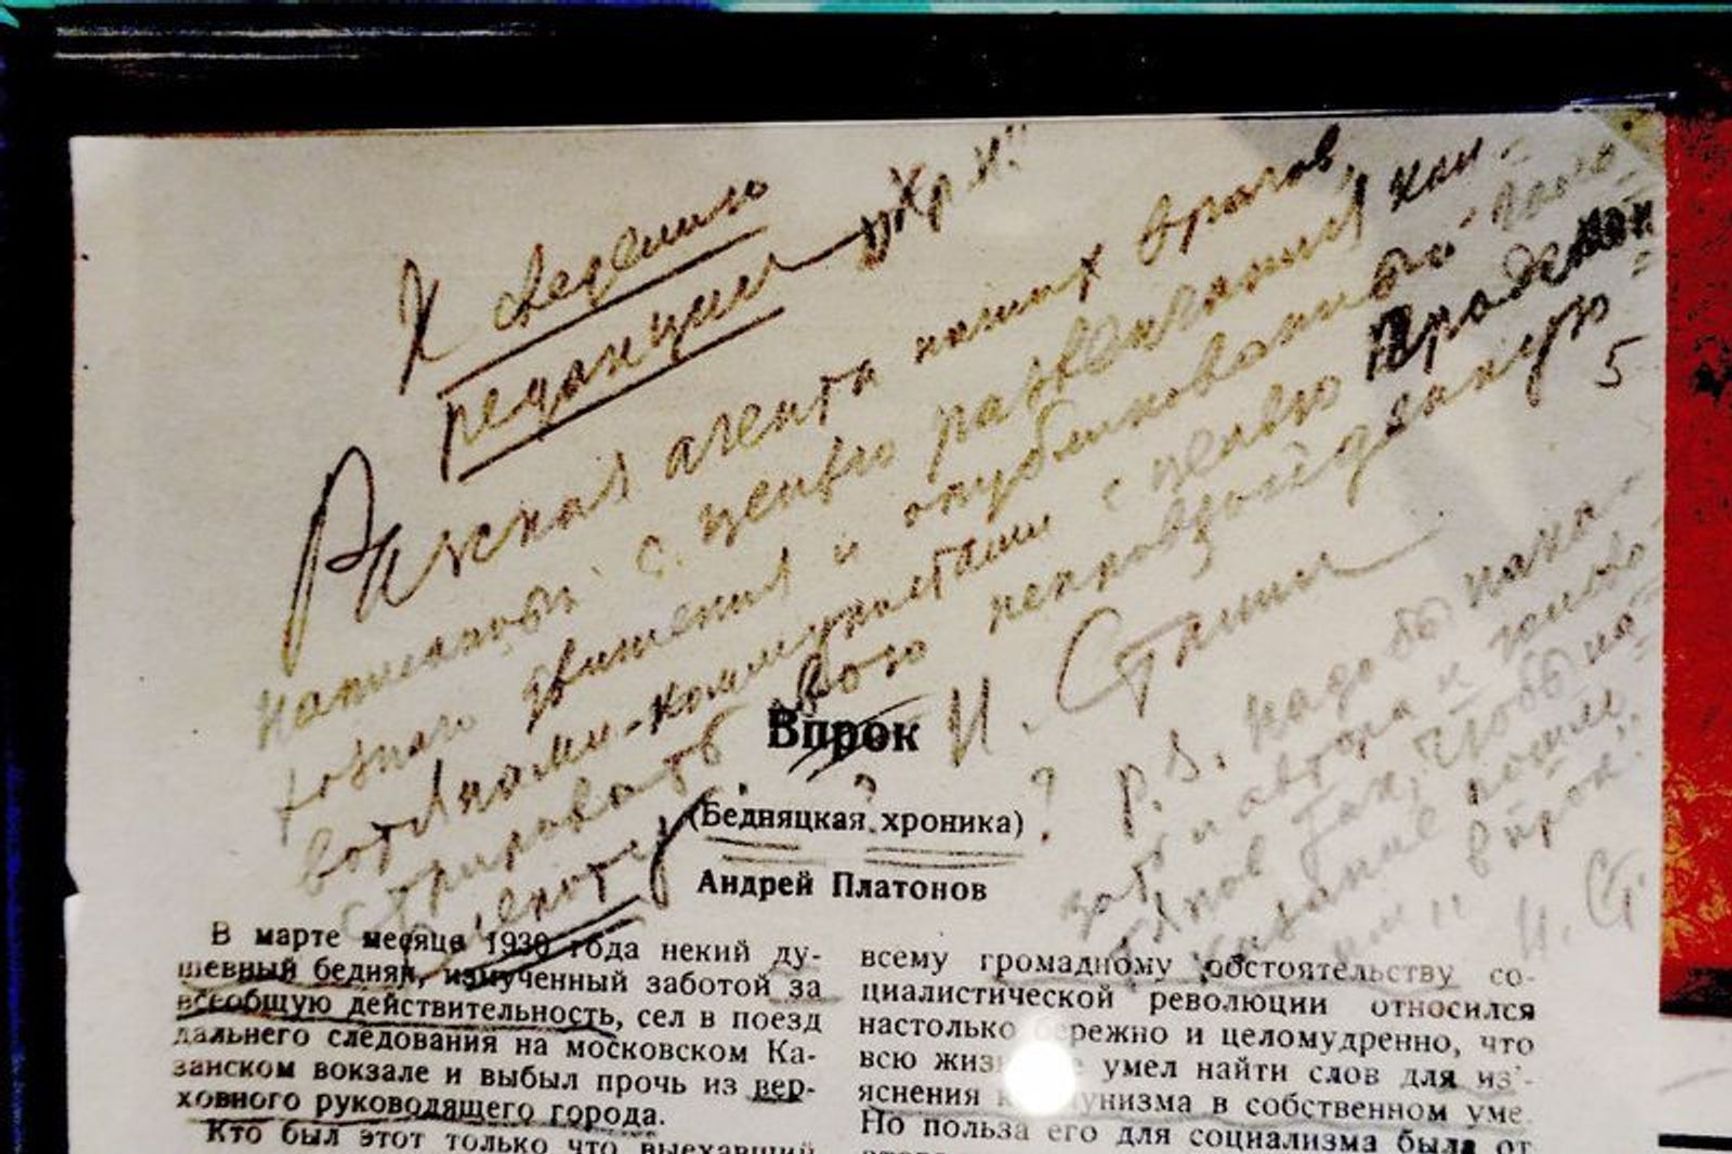 К сведению
редакции „Кр. Н."
Рассказ агента наших врагов,
написанный с целью развенчания кол-
хозного движения и опубликованный голо-
вотяпами-коммунистами с целью продемон-
стрировать свою непревзойденную
слепоту
И. Сталин
P. S. Надо бы нака-
зать и автора и голово-
тяпов так, чтобы на-
казание пошло
им „впрок".
И. Ст.
5
Впрок
(Бедняцкая хроника)
? ?
Андрей Платонов
В марте месяце 1930 года некий ду-
шевный бедняк, измученный заботой за
всеобщую действительность, сел в поезд
дальнего следования на московском Ка-
занском вокзале и выбыл прочь из вер-
ховного руководящего города.
Кто был этот только что выехавший
всему громадному обстоятельству со-
циалистической революции относился
настолько бережно и целомудренно, что
всю умел найти слов для из-
яснения в собственном уме.
Но польза его для социализма была от